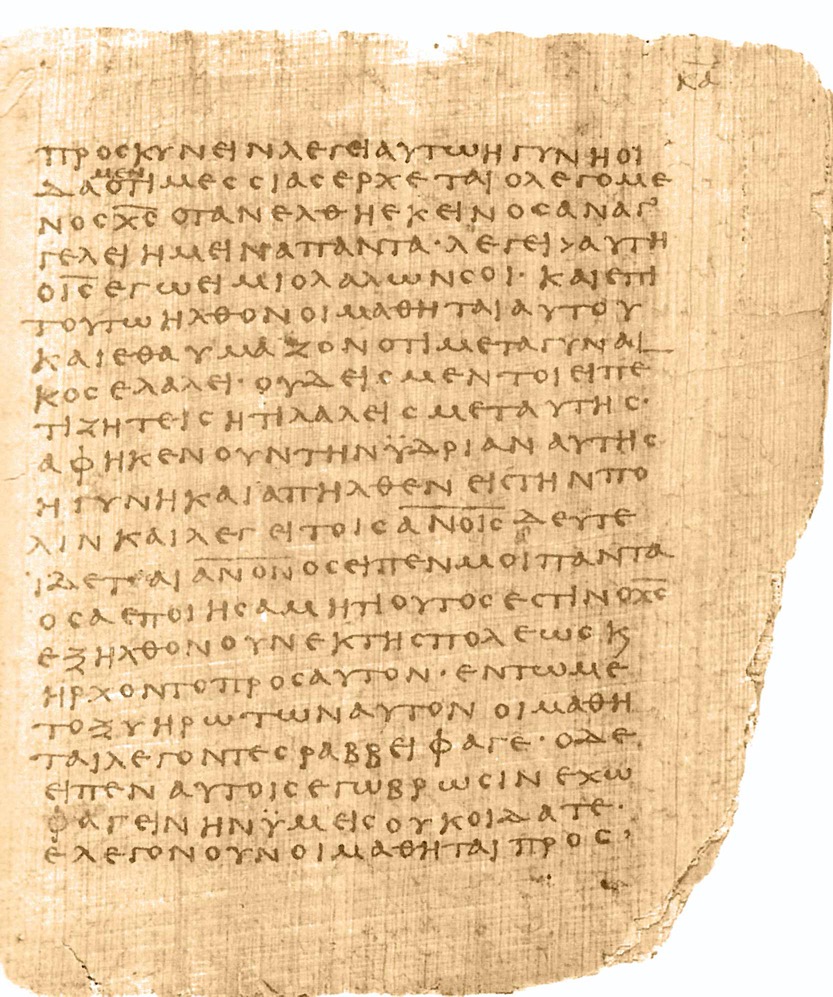 κα
ΠΡΟϹΚΥΝΕΙΝΛΕΓΕΙΑΥΤΩΗΓΥΝΗΟΙ
ΜΕΝ
ΔΑΟΤΙΜΕϹϹΙΑϹΕΡΧΕΤΑΙΟΛΕΓΟΜΕ
ΝΟϹΧ̅Ϲ̅ΟΤΑΝΕΛΘΗΕΚΕΙΝΟϹΑΝΑΓ'
ΓΕΛΕΙΗΜΕΙΝΑΠΑΝΤΑ·ΛΕΓΕΙ>ΑΥΤΗ
ΟΙ̅Ϲ̅ΕΓΩΕΙΜΙΟΛΑΛΩΝϹΟΙ·ΚΑΙΕΠΙ
ΤΟΥΤΩΗΛΘΟΝΟΙΜΑΘΗΤΑΙΑΥΤΟΥ
ΚΑΙΕΘΑΥΜΑΖΟΝΟΤΙΜΕΤΑΓΥΝΑΙ
ΚΟϹΕΛΑΛΕΙ·ΟΥΔΕΙϹΜΕΝΤΟΙΕΙΠΕ
ΤΙΖΗΤΕΙϹΗΤΙΛΑΛΕΙϹΜΕΤΑΥΤΗϹ·
ΑΦΗΚΕΝΟΥΝΤΗΝΫΔΡΙΑΝΑΥΤΗϹ
ΗΓΥΝΗΚΑΙΑΠΗΛΘΕΝΕΙϹΤΗΝΠΟ
ΛΙΝΚΑΙΛΕΓΕΙΤΟΙϹΑ̅Ν̅Ο̅Ι̅Ϲ̅ΔΕΥΤΕ
ΙΔΕΤΑΙΑ̅Ν̅Ο̅Ν̅ΟϹΕΙΠΕΝΜΟΙΠΑΝΤΑ
ΟϹΑΕΠΟΙΗϹΑΜΗΤΙΟΥΤΟϹΕϹΤΙΝΟΧ̅Ϲ̅
ΕΞΗΛΘΟΝΟΥΝΕΚΤΗϹΠΟΛΕΩϹϏ
ΗΡΧΟΝΤΟΠΡΟϹΑΥΤΟΝ·ΕΝΤΩΜΕ
ΤΟΞΥΗΡΩΤΩΝΑΥΤΟΝΟΙΜΑΘΗ
ΤΑΙΛΕΓΟΝΤΕϹΡΑΒΒΕΙΦΑΓΕ·ΟΔΕ
ΕΙΠΕΝΑΥΤΟΙϹΕΓΩΒΡΩϹΙΝΕΧΩ
ΦΑΓΕΙΝΗΝΫΜΕΙϹΟΥΚΟΙΔΑΤΕ·
ΕΛΕΓΟΝΟΥΝΟΙΜΑΘΗΤΑΙΠΡΟϹ'